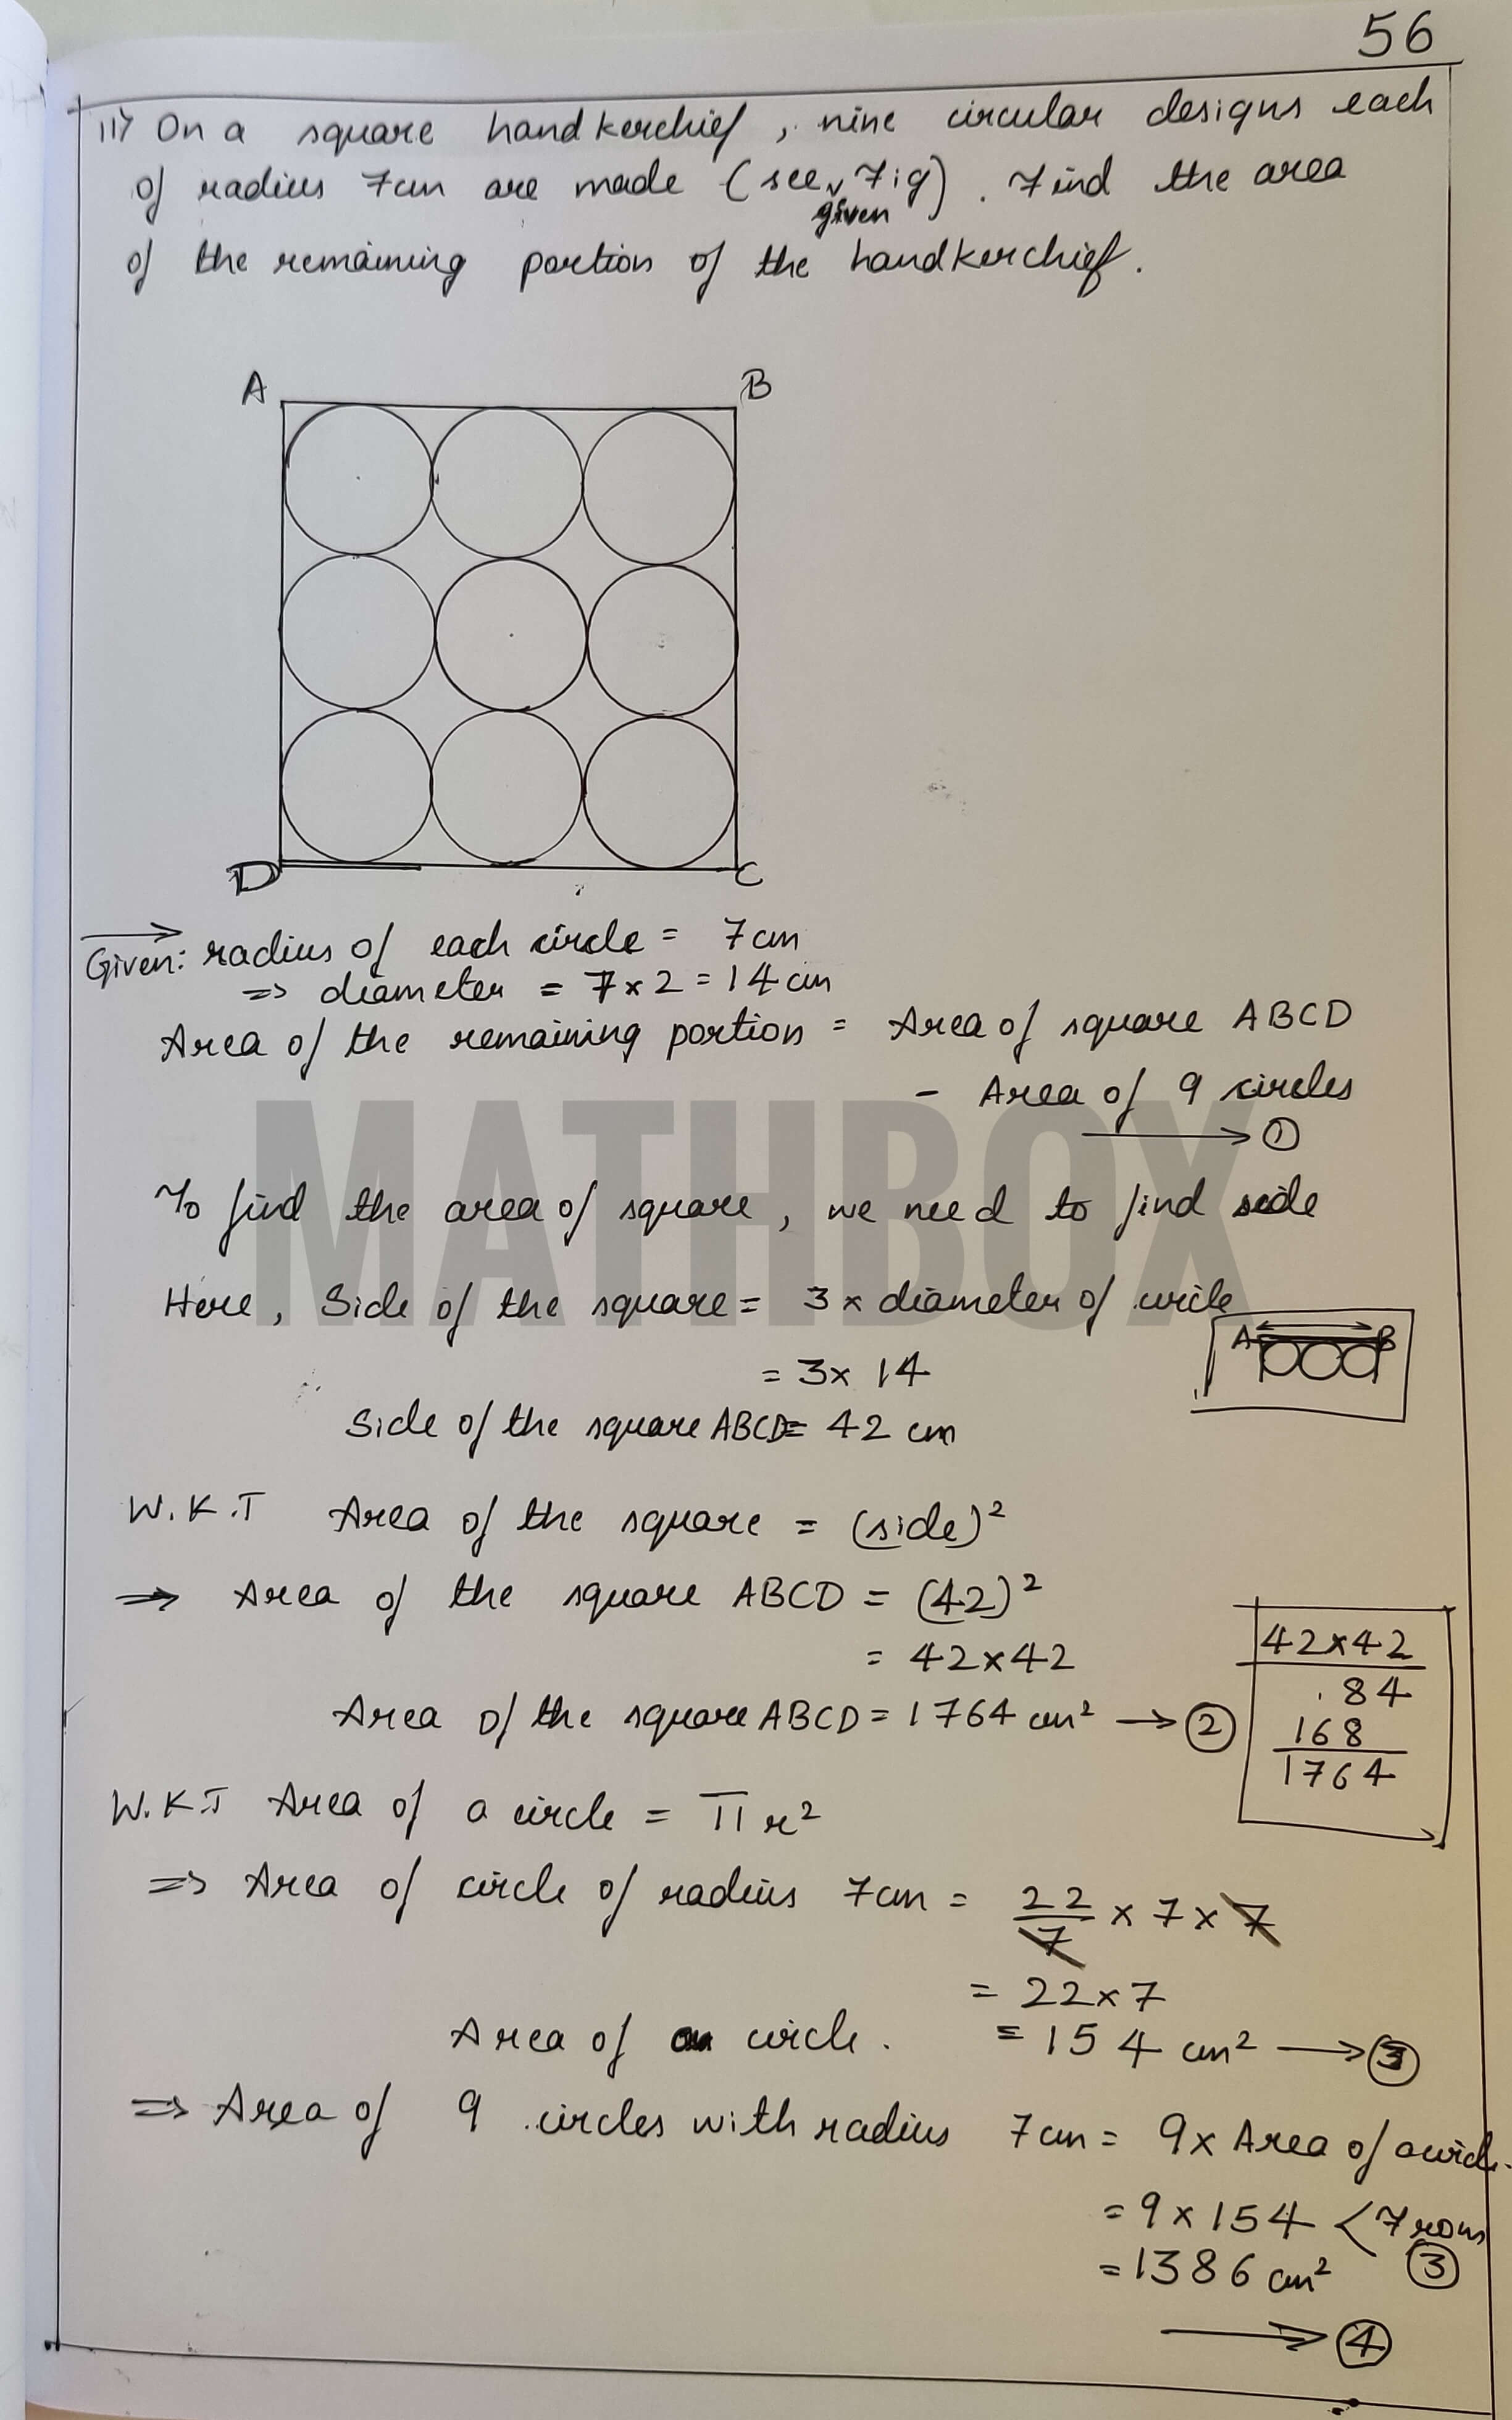 56
11) On a square handkerchief, nine circular designs each
of radius 7cm are made (see given Fig). Find the area
of the remaining portion of the handkerchief.
A B
D C
Given: radius of each circle = 7cm
=> diameter = 7×2 = 14cm
Area of the remaining portion = Area of square ABCD
- Area of 9 circles
→ ①
To find the area of square, we need to find side
Here, Side of the square = 3 × diameter of circle
A B
= 3× 14
Side of the square ABCD = 42 cm
W.K.T Area of the square = (side)²
=> Area of the square ABCD = (42)²
= 42×42
Area of the square ABCD = 1764 cm² → ②
42×42
84
168
1764
W.K.T Area of a circle = πr²
=> Area of circle of radius 7cm = 22/7 × 7 × 7
= 22×7
Area of a circle. = 154 cm² → ③
=> Area of 9 circles with radius 7cm = 9× Area of a circle.
= 9 × 154 < From ③
= 1386 cm²
→ ④
MATHBOX